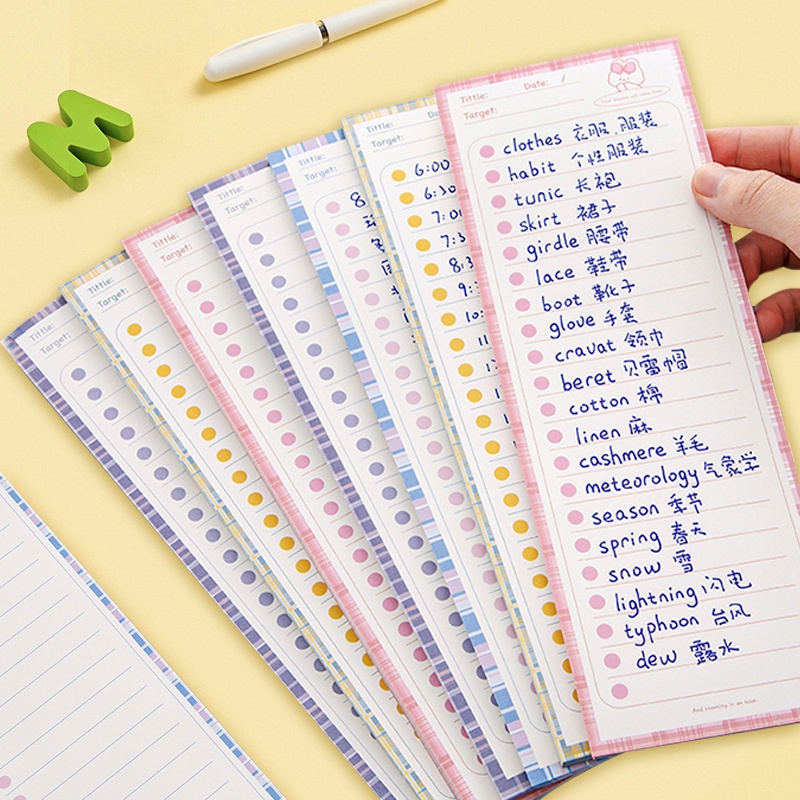 Tittle: Date: /
Target:
clothes 衣服,服装
habit 个性服装
tunic 长袍
skirt 裙子
girdle 腰带
lace 鞋带
boot 靴子
glove 手套
cravat 领巾
beret 贝雷帽
cotton 棉
linen 麻
cashmere 羊毛
meteorology 气象学
season 季节
spring 春天
snow 雪
lightning 闪电
typhoon 台风
dew 露水
And eternity in an hour.
Tittle:
Target:
6:00
6:30
7:00
7:3
8:3
9:
10:
11
Tittle:
Target:
8
Tittle:
Target:
Tittle:
Target:
Tittle:
Target:
Tittle:
Target:
M